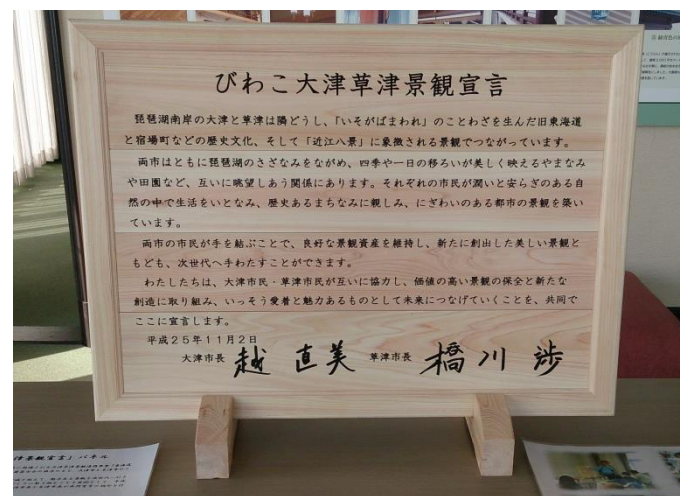 びわこ大津草津景観宣言
琵琶湖南岸の大津と草津は隣どうし、「いそがばまわれ」のことわざを生んだ旧東海道
と宿場町などの歴史文化、そして「近江八景」に象徴される景観でつながっています。
両市はともに琵琶湖のさざなみをながめ、四季や一日の移ろいが美しく映えるやまなみ
や田園など、互いに眺望しあう関係にあります。それぞれの市民が潤いと安らぎのある自
然の中で生活をいとなみ、歴史あるまちなみに親しみ、にぎわいのある都市の景観を築い
ています。
両市の市民が手を結ぶことで、良好な景観資産を維持し、新たに創出した美しい景観と
もども、次世代へ手わたすことができます。
わたしたちは、大津市民・草津市民が互いに協力し、価値の高い景観の保全と新たな
創造に取り組み、いっそう愛着と魅力あるものとして未来につなげていくことを、共同で
ここに宣言します。
平成25年11月2日
大津市長 越 直美 草津市長 橋川 渉
景観宣言」パネル